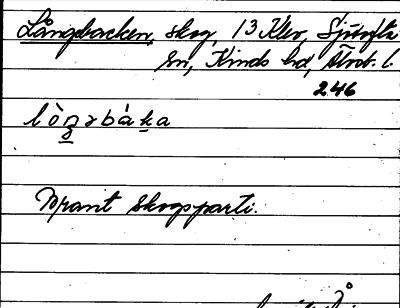 Långbacken, skog, 13 Klev, Sjötofta
sn, Kinds hd, Älvsb. l.
246
Brant skogsparti.